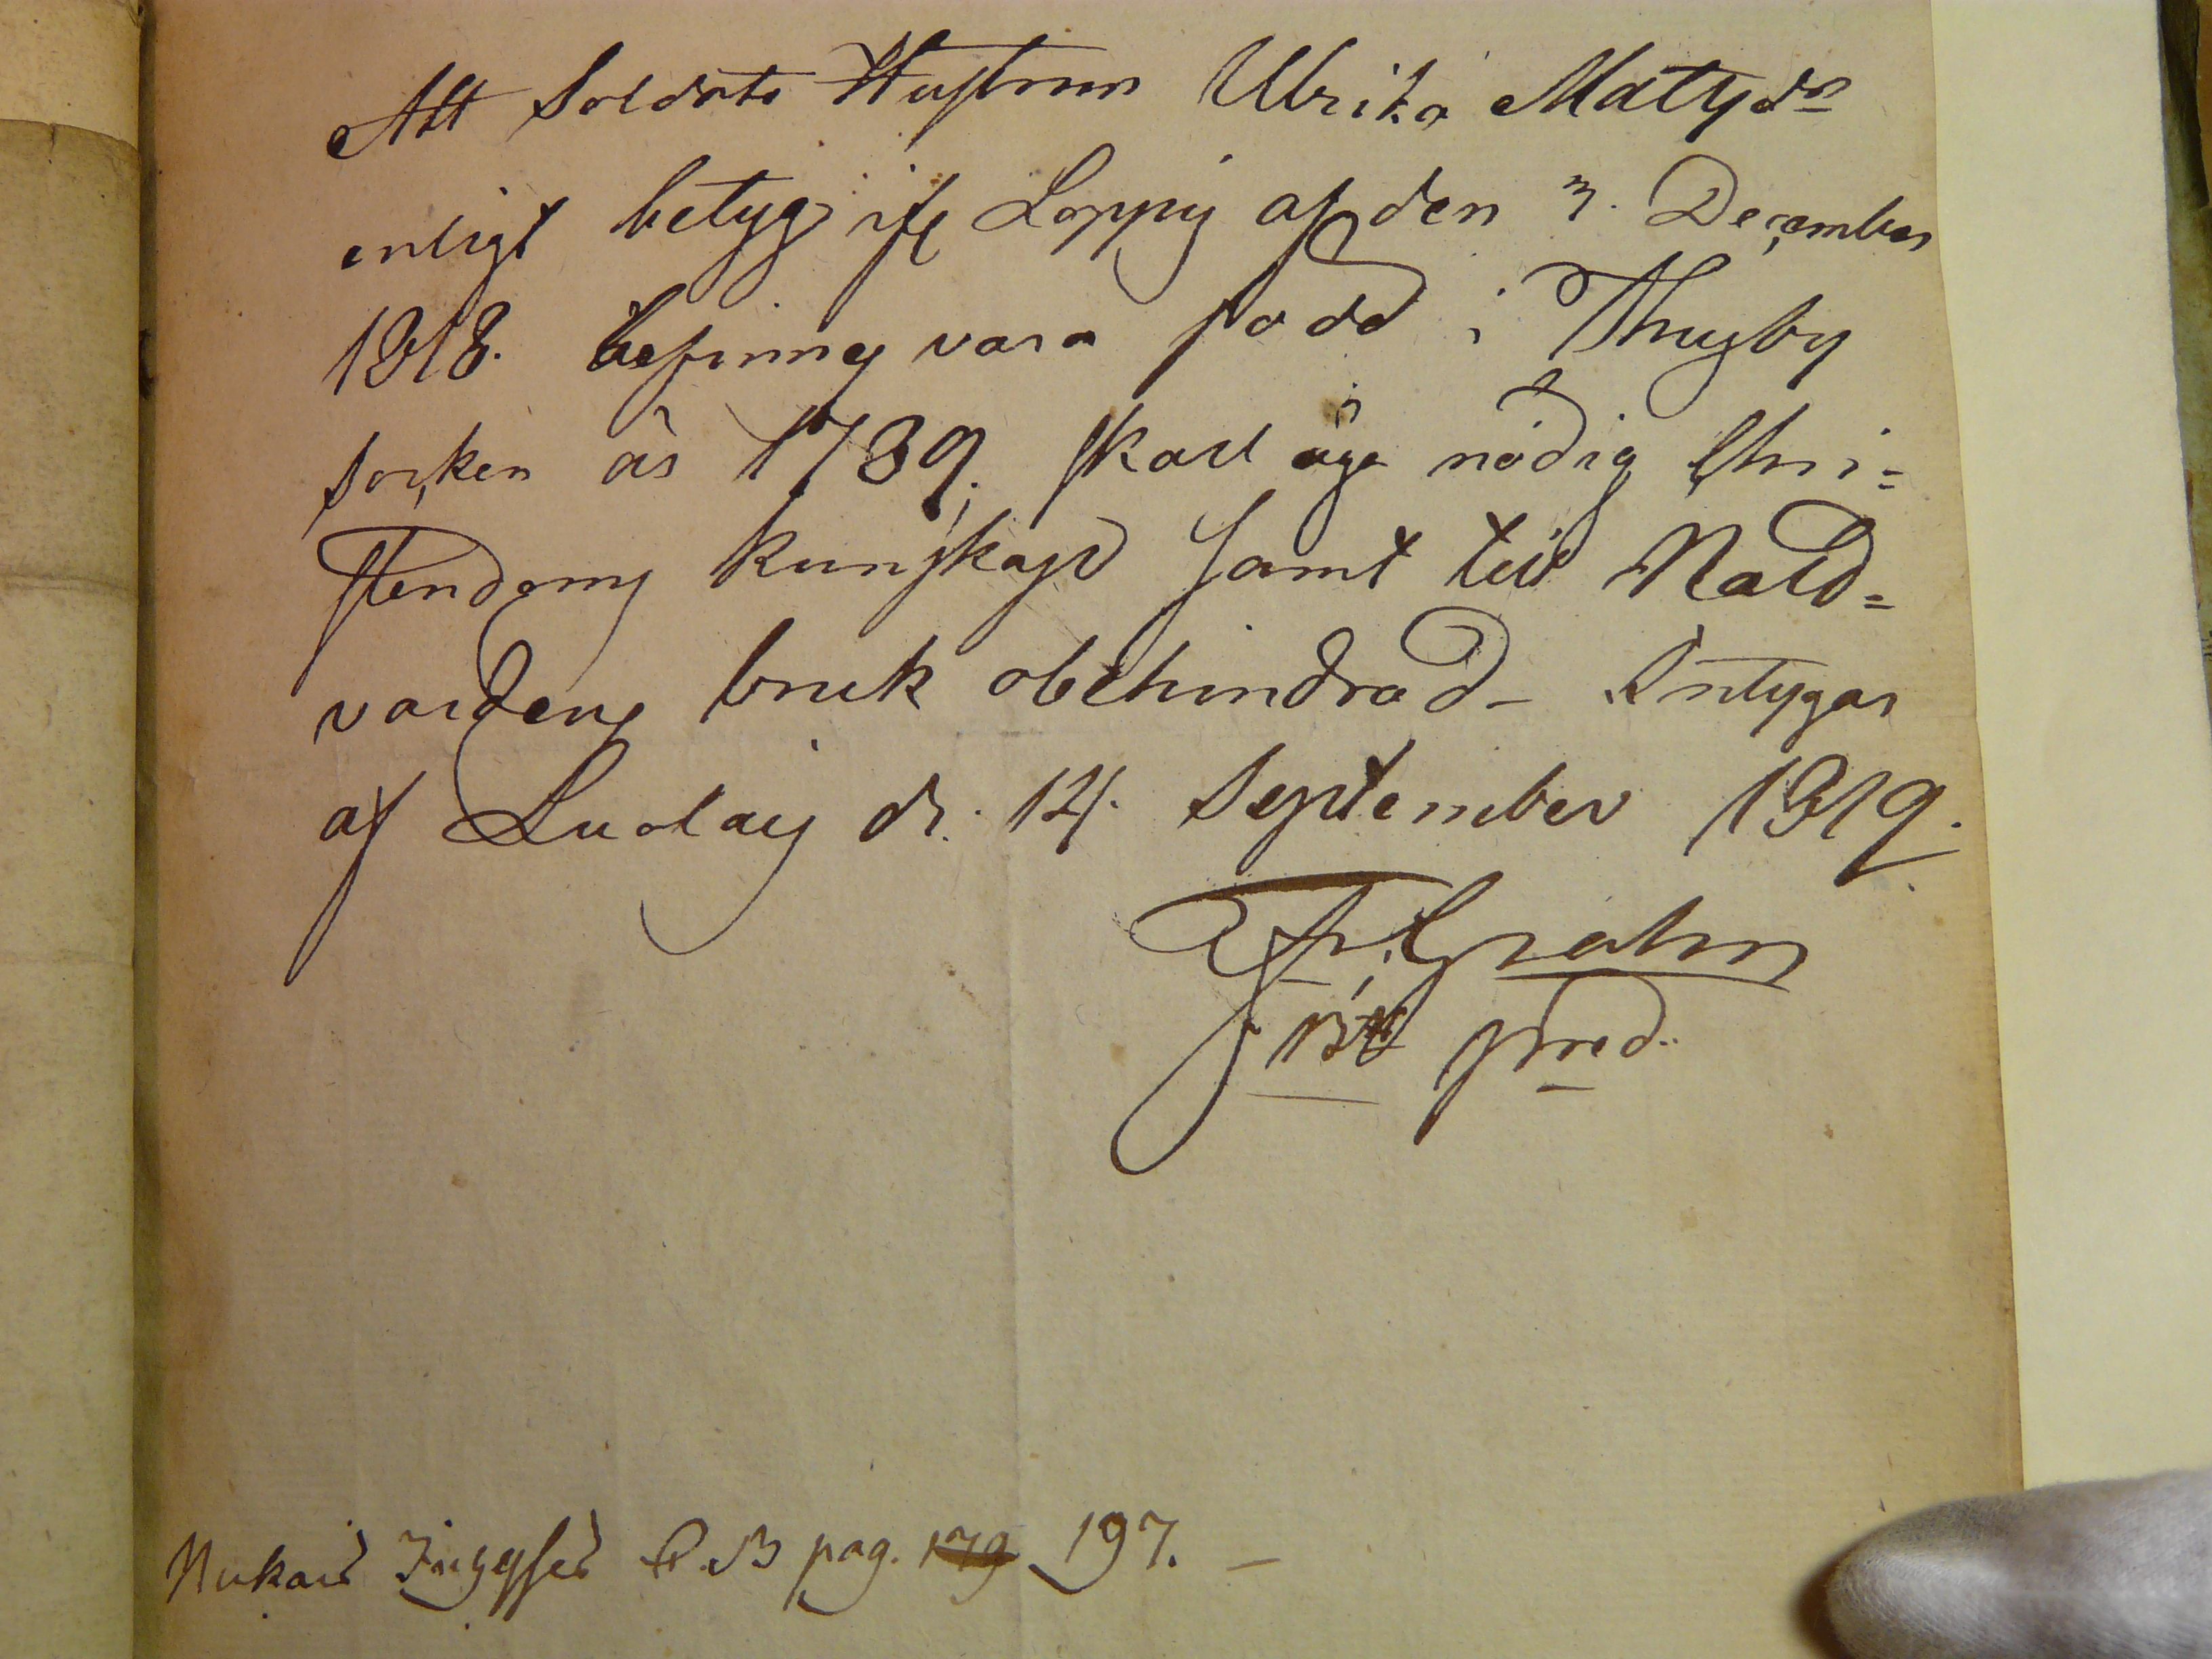 Att Soldats Hustrun Ulrika Matsdr
enligt betyg ifr Loppis af den 3. December
1818. befinnes vara född i Thusby
socken år 1789. skall äga nödig Chri-
stendoms kunskap samt till Natt-
vardens bruk obehindrad - Intygar
af Luolais d. 14. September 1819.
Fr. Grahn
Bt pred.
pag. 179 197. -